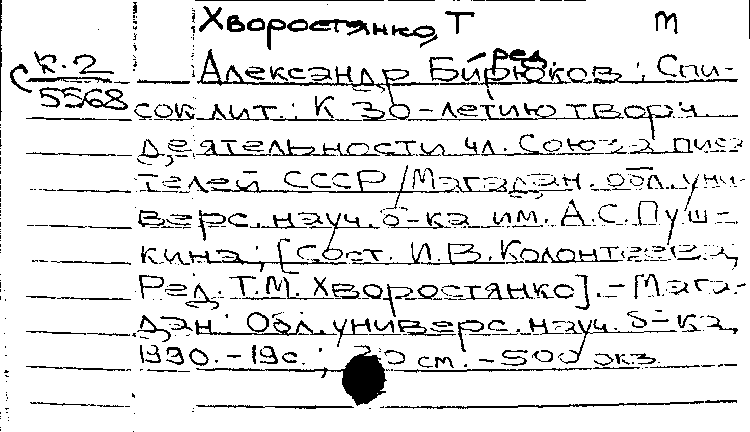 Хворостянко, Т М
- ред.
К.2 Александр Бирюков : Спи-
5568 сок лит. : К 30-летию творч.
деятельности чл. Союза писа
телей СССР / Магадан. обл. уни-
верс. науч. б-ка им. А.С. Пуш-
кина ; [Сост. И.В. Колонтеева,
Ред. Т.М. Хворостянко]. - Мага-
дан : Обл. универс. науч. б-ка,
1990. - 19 с. ; 20 см. - 500 экз